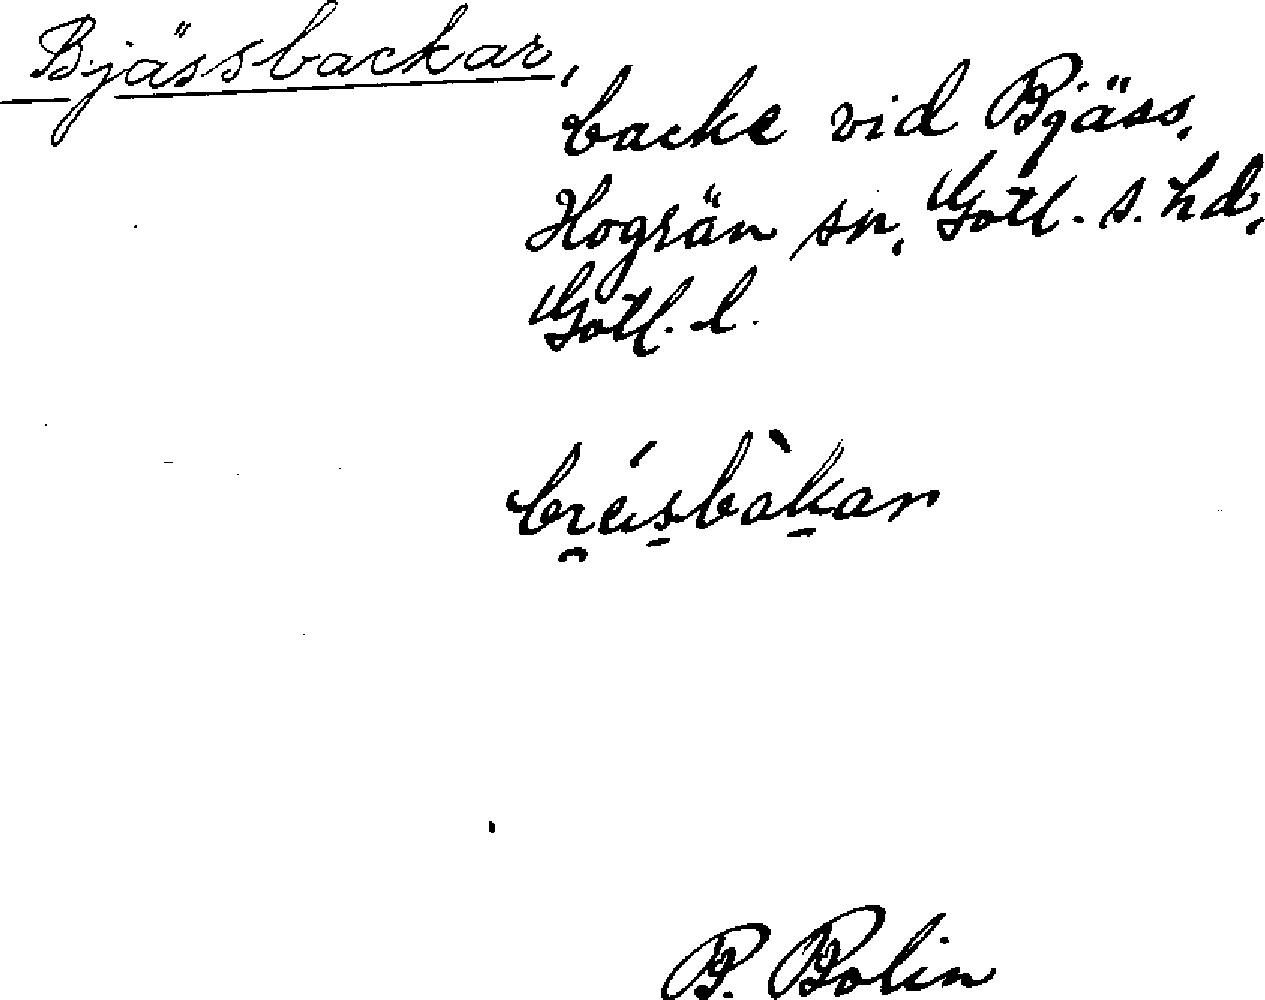 Bjässbackar,
backe vid Bjäss,
Hogrän sn, Gotl. s. hd,
Gotl. l.
B. Bolin